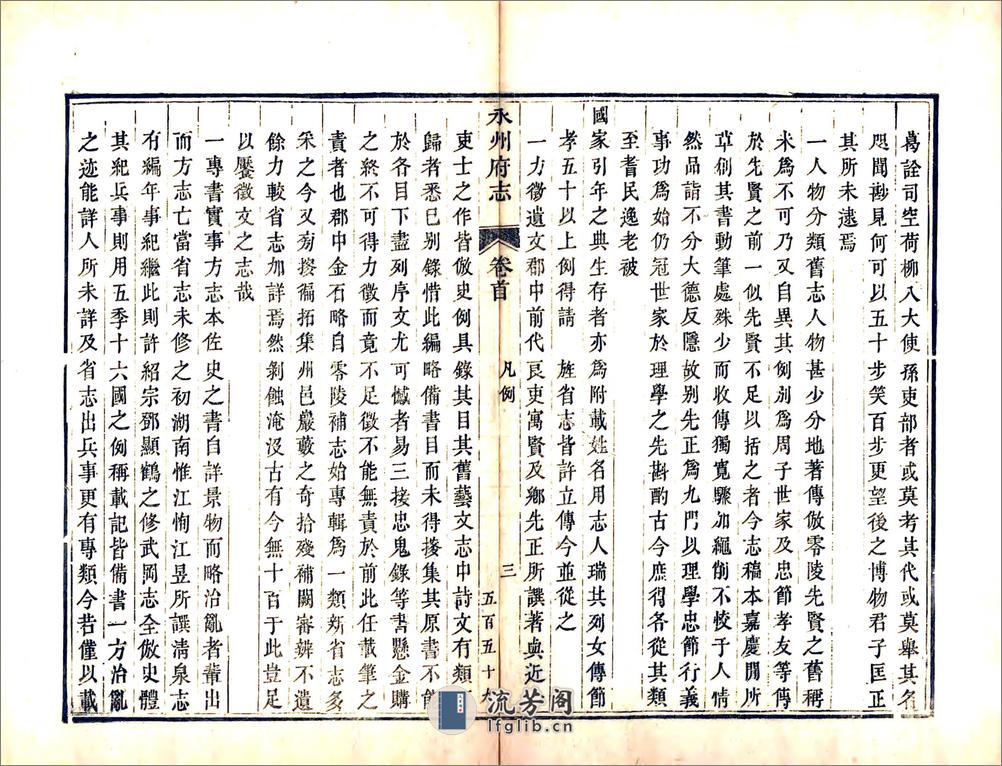 葛詮司空荷柳八大使孫吏部者或莫考其代或莫舉其名
咫聞尠見何可以五十步笑百步更望後之博物君子匡正
其所未逮焉
一人物分類舊志人物甚少分地著傳倣零陵先賢之舊稱
未爲不可乃又自異其例別爲周子世家及忠節孝友等傳
於先賢之前一似先賢不足以括之者今志稿本嘉慶閒所
草創其書動筆處殊少而收傳獨寬驟加繩削不愜于人情
然品詣不分大德反隱故別先正爲九門以理學忠節行義
事功爲始仍冠世家於理學之先斟酌古今庶得各從其類
至耆民逸老被
國家引年之典生存者亦爲附載姓名用志人瑞其列女傳節
孝五十以上例得請 旌省志皆許立傳今並從之
一力徵遺文郡中前代良吏寓賢及鄉先正所譔著與近
永州府志
卷首
凡例
三
五百五十六
吏士之作皆倣史例具錄其目其舊藝文志中詩文有類
歸者悉已別錄惜此編略備書目而未得搜集其原書不能
於各目下盡列序文尤可憾者易三接忠鬼錄等書懸金購
之終不可得力徵而竟不足徵不能無責於前此任載筆之
責者也郡中金石略自零陵補志始專輯爲一類新省志多
采之今又㫄搜徧拓集州邑巖藪之奇拾殘補闕審辨不遺
餘力較省志加詳焉然剝蝕淹沒古有今無十百于此豈足
以饜徵文之志哉
一專書實事方志本佐史之書自詳景物而略治亂者輩出
而方志亡當省志未修之初湖南惟江恂江昱所譔淸泉志
有編年事紀繼此則許紹宗鄧顯鶴之修武岡志全倣史體
其紀兵事則用五季十六國之例稱載記皆備書一方治亂
之迹能詳人所未詳及省志出兵事更有專類今若僅以載
流芳阁
lfglib.cn